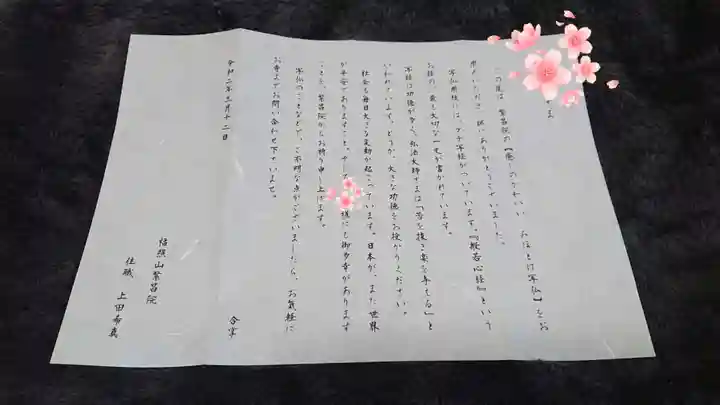 さま
この度は 繁昌院の【癒しのかわいい みほとけ写仏】をお
求めいただき 誠にありがとうございました。
写仏用紙には、プチ写経がついています。『般若心経』という
お経の、最も大切な一文が書かれています。
写経は功徳が多く、弘法大師さまは「苦を抜き楽を与える」と
いわれています。どうか、大きな功徳をお授かりください。
社会も毎日大きな変動が起こっています。日本が、また世界
が平安でありますこと。そして 様にも御多幸があります
ことを、繁昌院からお祈り申し上げます。
写仏のことなどで、ご不明な点がございましたら、お気軽に
お寺までお問い合わせ下さいませ。
合掌
令和二年三月十二日
恒照山繁昌院
住職 上田希真